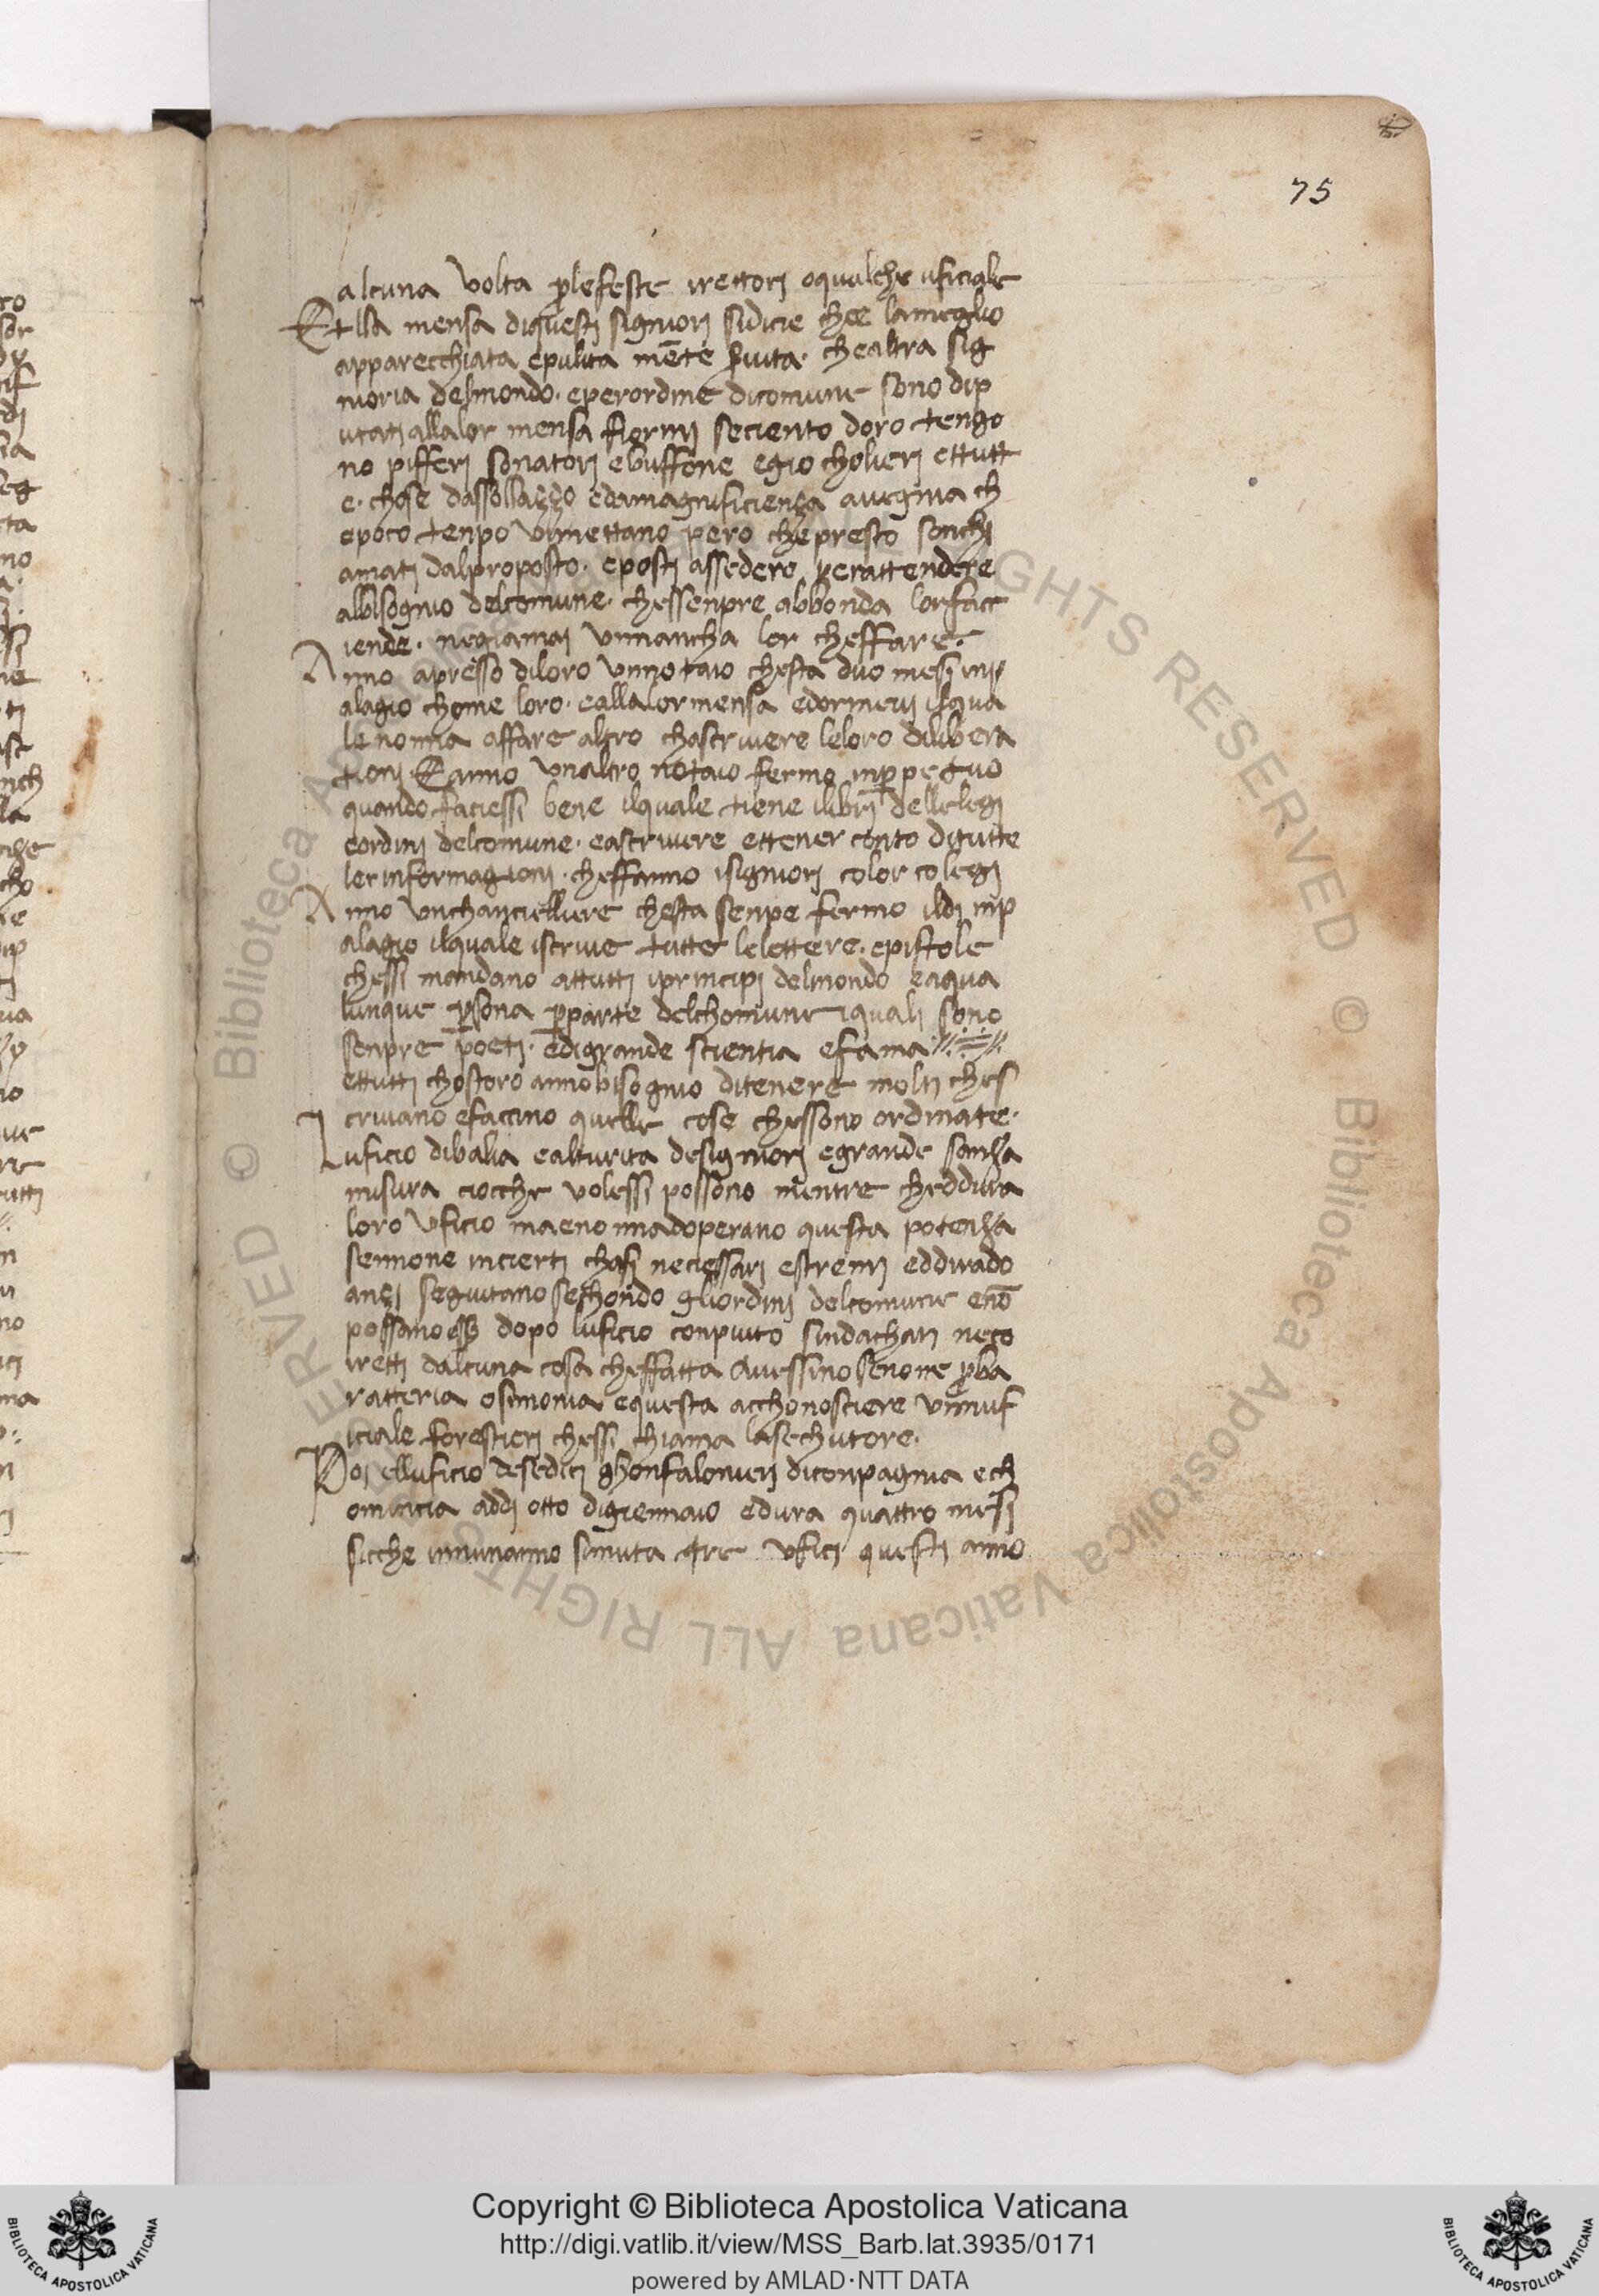 75
alcuna volta ꝑlefeste irettori oqualche uficiale
Et lla mensa diquesti signiori sidicie chee lameglio
apparecchiata epulita mēte s̄uita· chealtra sig
nioria delmondo· eperordine dicomune sono dip
utati allalor mensa fiorini seciento doro tengo
no pifferi sonatori ebuffone egio cholieri ettutt
e· chose dassollaçço edamagnificiença auegnia ch
epoco tenpo vimettano pero chepresto sonchi
amati dalproposto· eposti assedere perattendere
albisognio delcomune· chessenpre abbonda lorfacc
iende· negiamai vimancha lor cheffare·
Anno apresso diloro vnnotaio chesta duo mesi inp
alagio chome loro· eallalormensa edormeuj ilqua
le nonna affare altro chascriuere leloro dilibera
tioni· Eanno vnaltro notaio fermo inꝑpetuo
quando faciessi bene ilquale tiene ilibri dellelegi
eordini delcomune· eascriuere ettener conto ditutte
leriformagioni· cheffanno isigniori color colegi
Anno vnchancielliere chesta senpe fermo ildi inp
alagio ilquale iscriue tutte lelettere· epistole
chessi mandano attutti iprincipi delmondo eaqua
lunque ꝑsona ꝑparte delchomune iquali sono
senpre poeti· edigrande scientia efama
ettutti chostoro annobisognio ditenere molti ches
criuano efaccino quelle cose chessono ordinate·
Luficio dibalia ealturita designiori egrande sanza
misura ciocche volessi possono mentre cheddura
loro vficio maenonnadoperano questa potenza
sennone incierti chasi neciessari estremi eddirado
ançi seguitano sechondo gliordini delcomune enō
possano dopo luficio conpiuto sindachati neco
rretti dalcuna cosa cheffatta auessino senone ꝑba
ratteria osimonia equesta acchonosciere vnnuf
iciale forestieri chessi chiama lasechutore·
Poi elluficio desedici ghonfalonieri diconpagnia ech
omincia addi otto digiennaio edura quattro mesi
sicche innunanno simuta tre vfici questi anno
Copyright © Biblioteca Apostolica Vaticana
http://digi.vatlib.it/view/MSS_Barb.lat.3935/0171
powered by AMLAD·NTT DATA